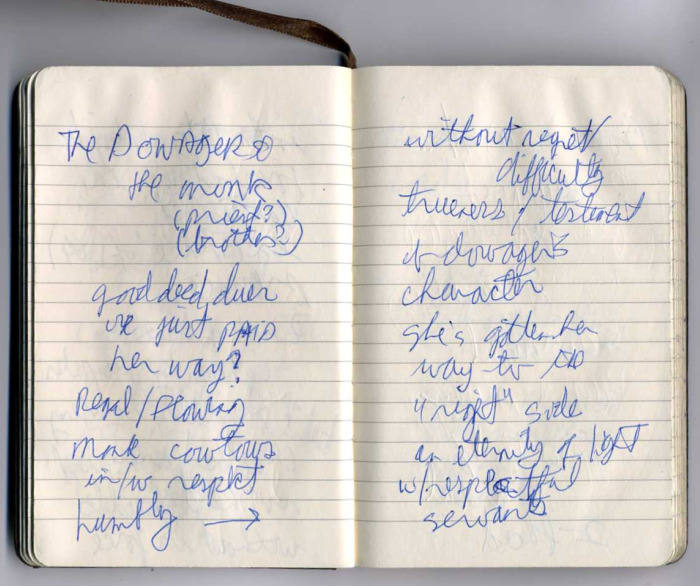 The Dowager &
the monk
(priest?)
(brother?)
good deed doer
or just PAID
her way?
Regal / Flowing
monk cowtows
in/w respect
humbly →
without regret/
difficulty
trueness / testament
of dowager's
character
she's gotten her
way to
"right" side
an eternity of light
w/respectful
servants